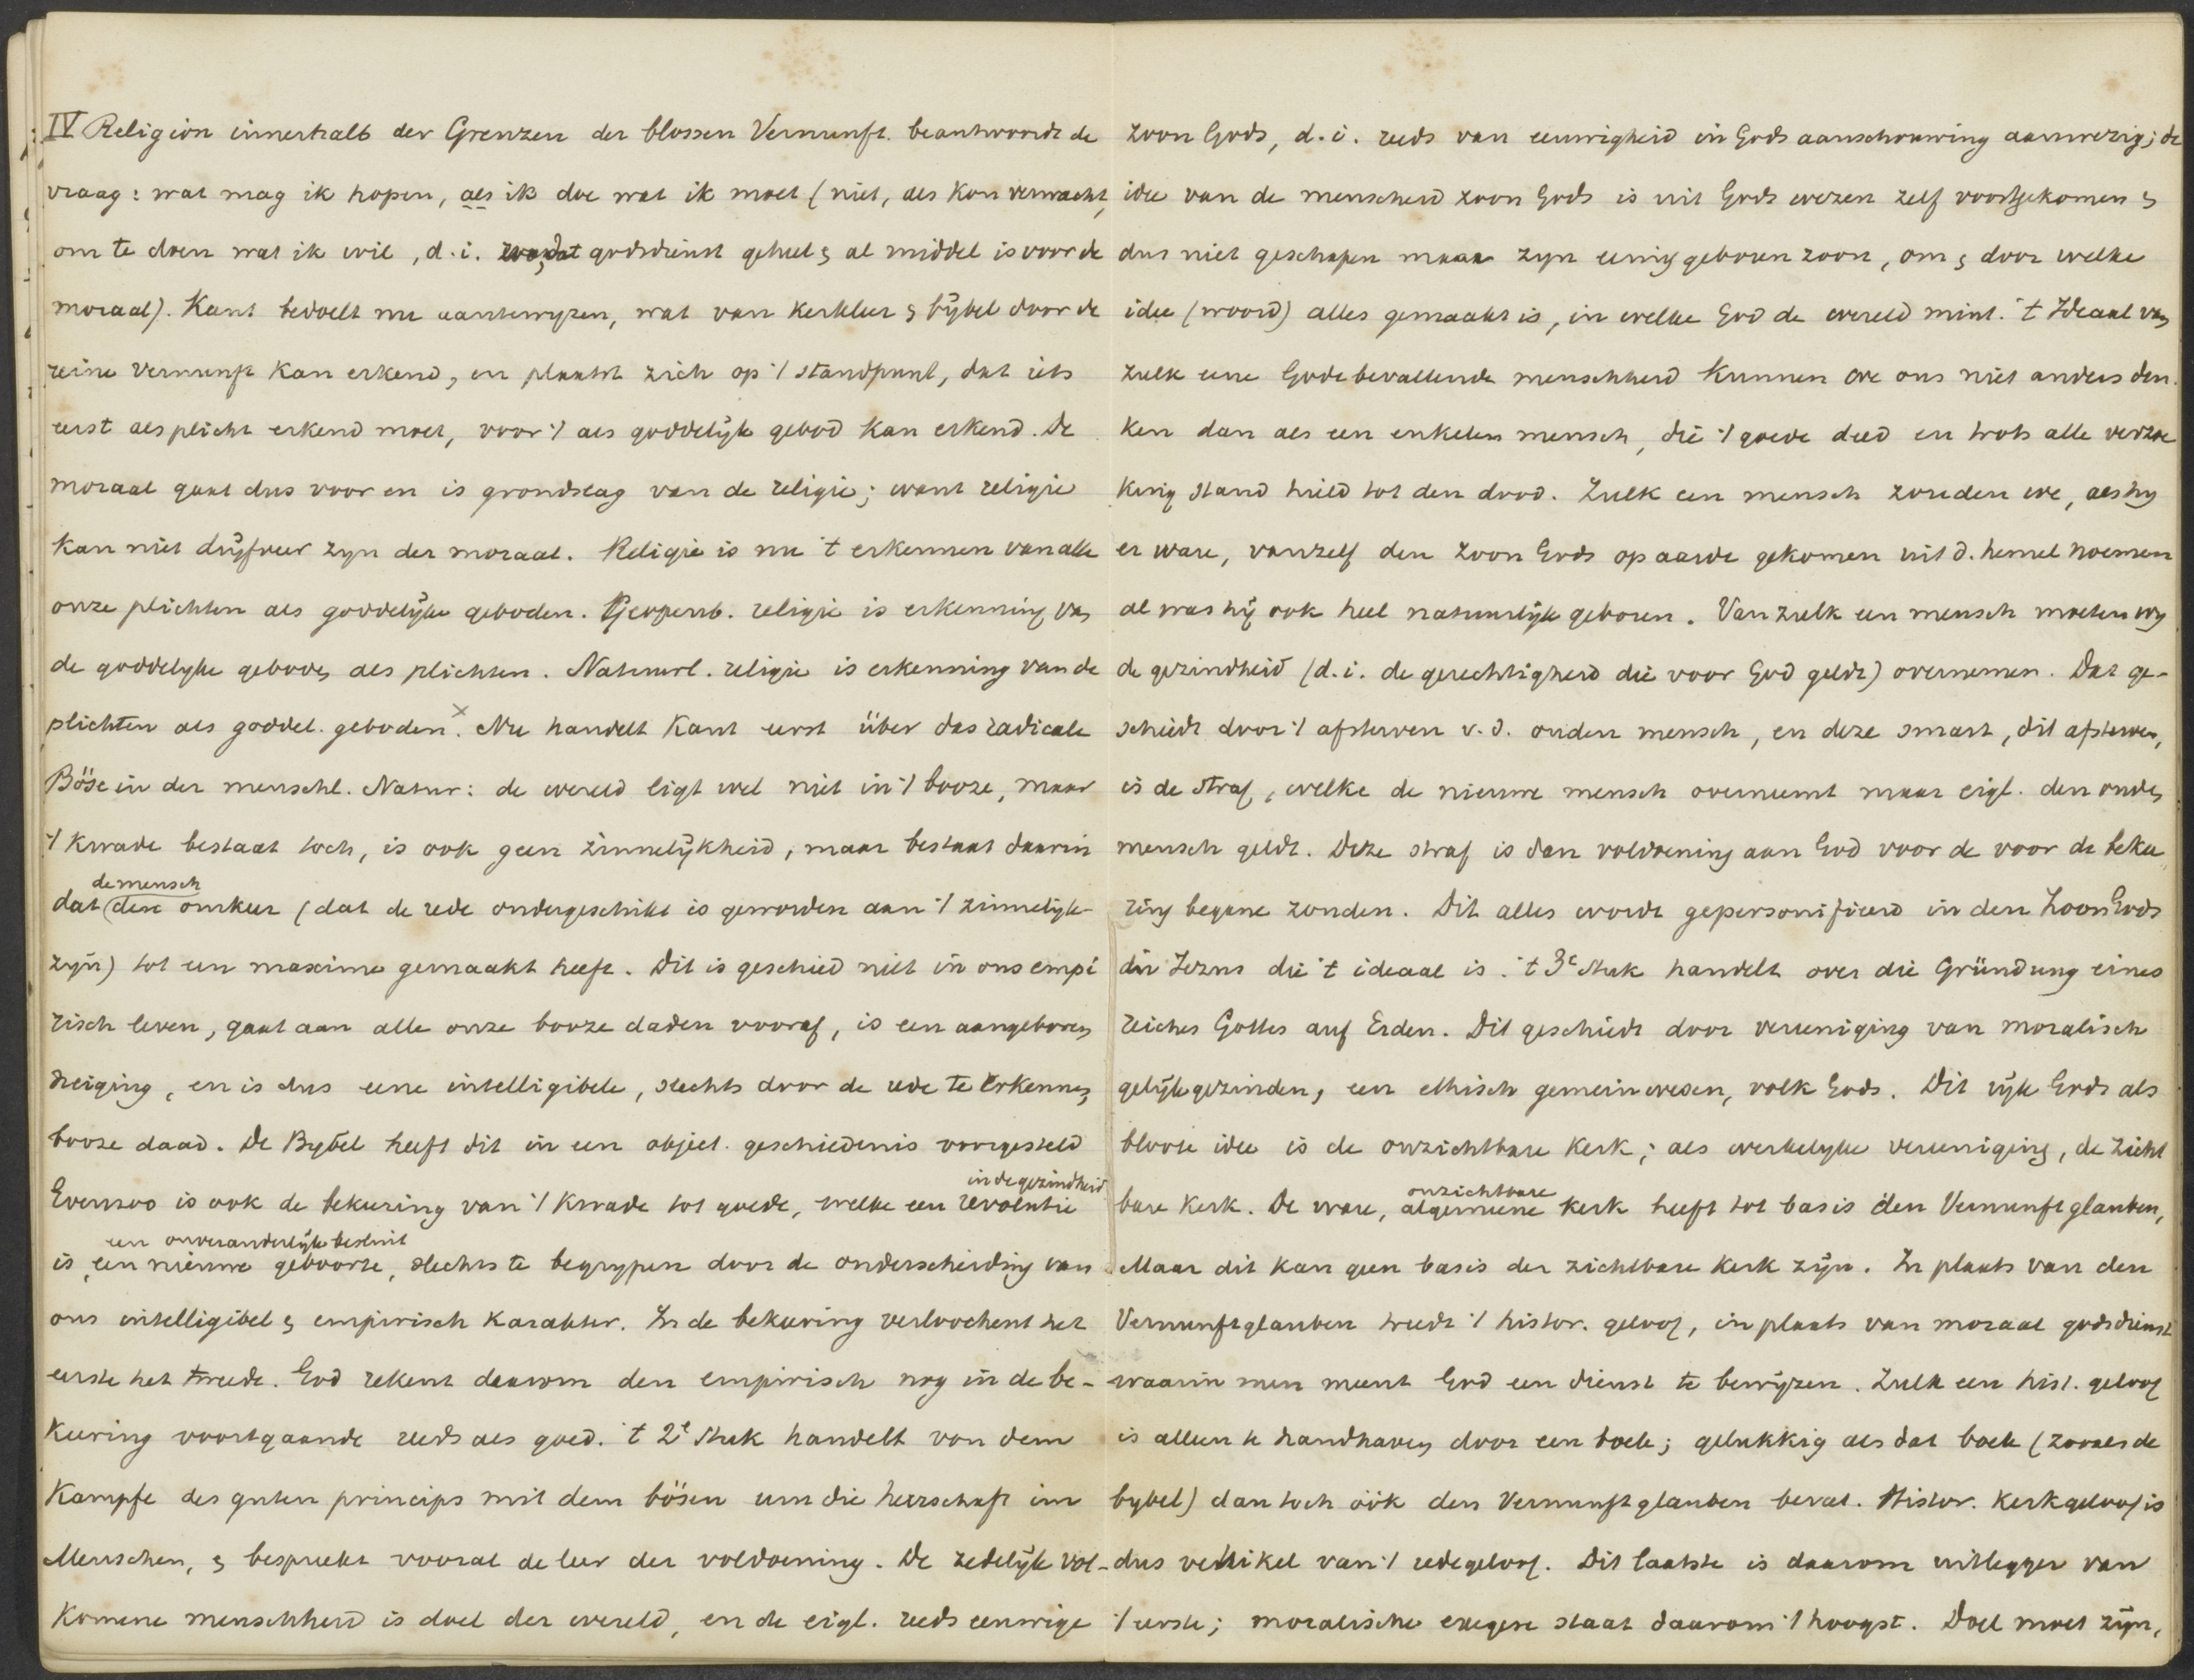 IV Religion innerhalb der Grenzen der blossen Vernunft. beantwoordt de
vraag: wat mag ik hopen, als ik doe wat ik moet (niet, als kon verwacht,
om te doen wat ik wil, d.i. godsdienst geheel & al middel is voor de
moraal). Kant bedoelt nu aantewyzen, wat van kerkleer & bÿbel door de
reine Vernunft kan erkend, en plaatst zich op 't standpunt, dat iets
eerst als plicht erkend moet, voor 't als goddelÿk gebod kan erkend. De
moraal gaat dus voor en is grondslag van de religie; want religie
kan niet drÿfveer zyn der moraal. Religie is nu 't erkennen van alle
onze plichten als goddelÿke geboden. Geopenb. religie is erkenning van
de goddelyke geboden als plichten. Natuurl. religie is erkenning van de
plichten als goddel. geboden.x Nu handelt Kant eerst über das radicale
Böse in der menschl. Natur: de wereld ligt wel niet in 't booze, maar
't kwade bestaat toch, is ook geen zinnelÿkheid, maar bestaat daarin
de mensch
dat deze omkeer (dat de rede ondergeschikt is geworden aan 't zinnelijk-
zyn) tot een maxime gemaakt heeft. Dit is geschied niet in ons empi
risch leven, gaat aan alle onze booze daden vooraf, is een aangeboren
neiging, en is dus eene intelligibele, slechts door de rede te erkennen,
booze daad. De Bybel heeft dit in een object. geschiedenis voorgesteld
in de gezindheid
Evenzoo is ook de bekeering van 't kwade tot goede, welke een revolutie
een onveranderlÿk besluit
is, een nieuwe geboorte, slechts te begrypen door de onderscheiding van
ons intelligibel & empirisch karakter. In de bekeering verloochent het
eerste het tweede. God rekent daarom den empirisch nog in de be-
keering voortgaande reeds als goed. 't 2e Stuk handelt von dem
Kampfe des guten princips mit dem bösen um die herrschaft im
Menschen, & bespreekt vooral de leer der voldoening. De zedelÿk vol-
komene menschheid is doel der wereld, en de eigl. reeds eeuwige
zoon Gods, d.i. reeds van eeuwigheid in Gods aanschouwing aanwezig; de
idee van de menscheid zoon Gods is uit Gods wezen zelf voortgekomen &
dus niet geschapen maar zyn eenig geboren zoon, om & door welke
idee (woord) alles gemaakt is, in welke God de wereld mint. 't Ideaal van
zulk eene Gode bevallende menschheid kunnen we ons niet anders den.
ken dan als een enkelen mensch, die 't goede deed en trots alle verzoe
king stand hield tot den dood. Zulk een mensch zouden we, als hy
er ware, vanzelf den zoon Gods op aarde gekomen uit d. hemel noemen
al was hÿ ook heel natuurlÿk geboren. Van zulk een mensch moeten wy
de gezindheid (d.i. de gerechtigheid die voor God geldt) overnemen. Dat ge-
schiedt door 't afsterven v.d. ouden mensch, en deze smart, dit afsterven,
is de straf, welke de nieuwe mensch overneemt maar eigl. den ouden
mensch geldt. Deze straf is dan voldoening aan God voor de voor de bekee
ring begane zonden. Dit alles wordt gepersonifieerd in den Zoon Gods
die Jezus die 't ideaal is. 't 3e Stuk handelt over die Gründung eines
reiches Gottes auf Erden. Dit geschiedt door vereeniging van moralisch
gelÿkgezinden, een ethisch gemeinwesen, volk Gods. Dit rÿk Gods als
bloote idee is de onzichtbare kerk; als werkelyke vereeniging, de zicht
onzichtbare
bare kerk. De ware, algemeene kerk heeft tot basis den Vernunftglauben,
Maar dit kan geen basis der zichtbare kerk zÿn. In plaats van den
Vernunftglauben treedt 't histor. geloof, in plaats van moraal godsdienst
waarin men meent God een dienst te bewÿzen. Zulk een hist. geloof
is alleen te handhaven door een boek; gelukkig als dat boek (zooals de
bybel) dan toch óók den Vernunftglauben bevat. Histor. kerkgeloof is
dus vehikel van 't redegeloof. Dit laatste is daarom uitlegger van
't eerste; moralische exegese staat daarom 't hoogst. Doel moet zÿn,